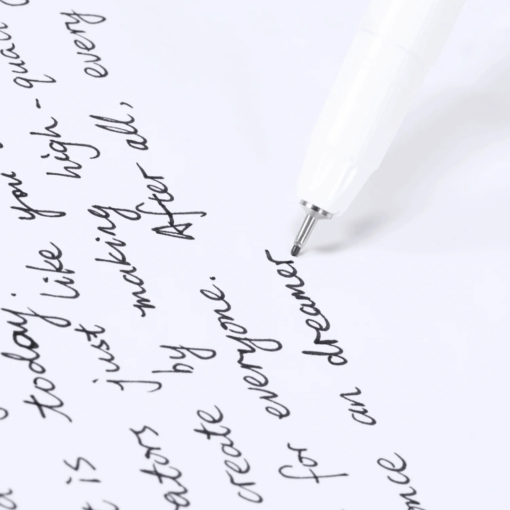 is today.
just like you
create by making high-quali
for everyone. After all, every
an dreamer